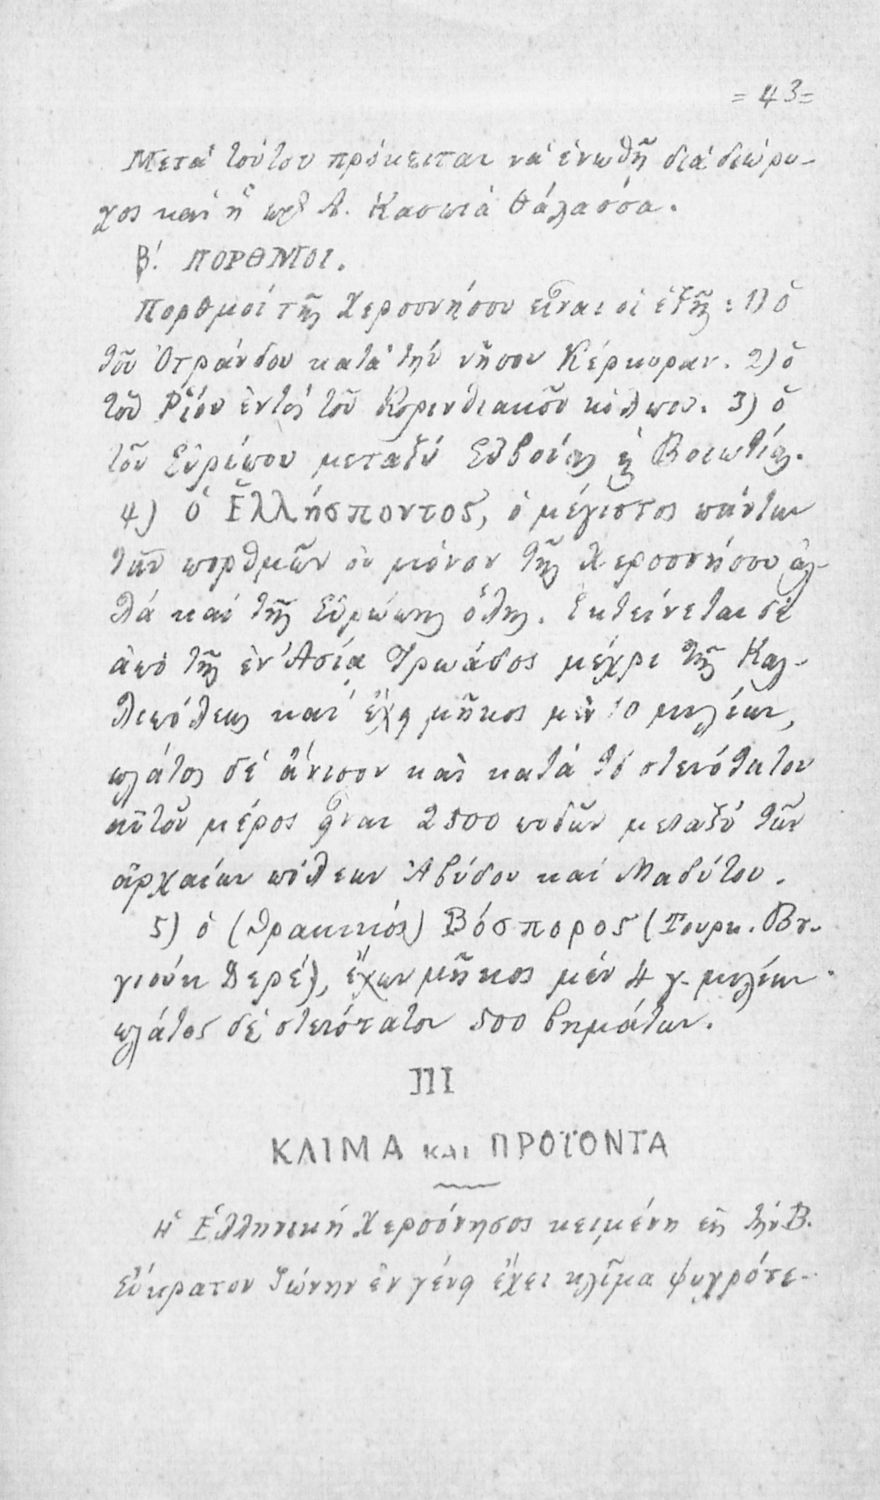 = 43 =
Μετὰ τούτου πρόκειται νὰ ἑνωθῇ διὰ διώρυ-
χος καὶ ἡ Κασπιὰ θάλασσα.
Β'. ΠΟΡΘΜΟΙ.
Πορθμοὶ τῆς Χερσονήσου εἶναι οἱ ἑξῆς: 1) ὁ
τοῦ Ὀτράνδου κατὰ τὴν νῆσον Κέρκυραν. 2) ὁ
τοῦ Ῥίου ἐντὸς τοῦ Κορινθιακοῦ κόλπου. 3) ὁ
τοῦ Εὐρίπου μεταξὺ Εὐβοίας ϗ Βοιωτίας.
4) ὁ Ἑλλήσποντος, ὁ μέγιστος πάντων
τῶν πορθμῶν οὐ μόνον τῆς Χερσονήσου ἀλ-
λά καὶ τῆς Εὐρώπης ὅλης. Ἐκτείνεται δὲ
ἀπὸ τῆς ἐν Ἀσίᾳ Τρωάδος μέχρι τῆς Καλ-
λιπόλεως καὶ ἔχει μῆκος μὲν 10 μιλίων,
πλάτος δὲ ἄνισον καὶ κατὰ τὸ στενότατον
αὐτοῦ μέρος εἶναι 2500 ποδῶν μεταξὺ τῶν
ἀρχαίων πόλεων Ἀβύδου καὶ Μαδύτου.
5) ὁ (Θρακικὸς) Βόσπορος (Τουρκ. Βυ-
γιοὺκ Δερέ), ἔχων μῆκος μὲν 4 γ. μιλίων
πλάτος δὲ στενότατον 500 βημάτων.
ΙΙΙ
ΚΛΙΜΑ ΚΑΙ ΠΡΟΪΟΝΤΑ
Ἡ Ἑλληνικὴ Χερσόνησος κειμένη εἰς τὴν Β.
Εὔκρατον Ζώνην ἐν γένει ἔχει κλῖμα ψυχρότε-